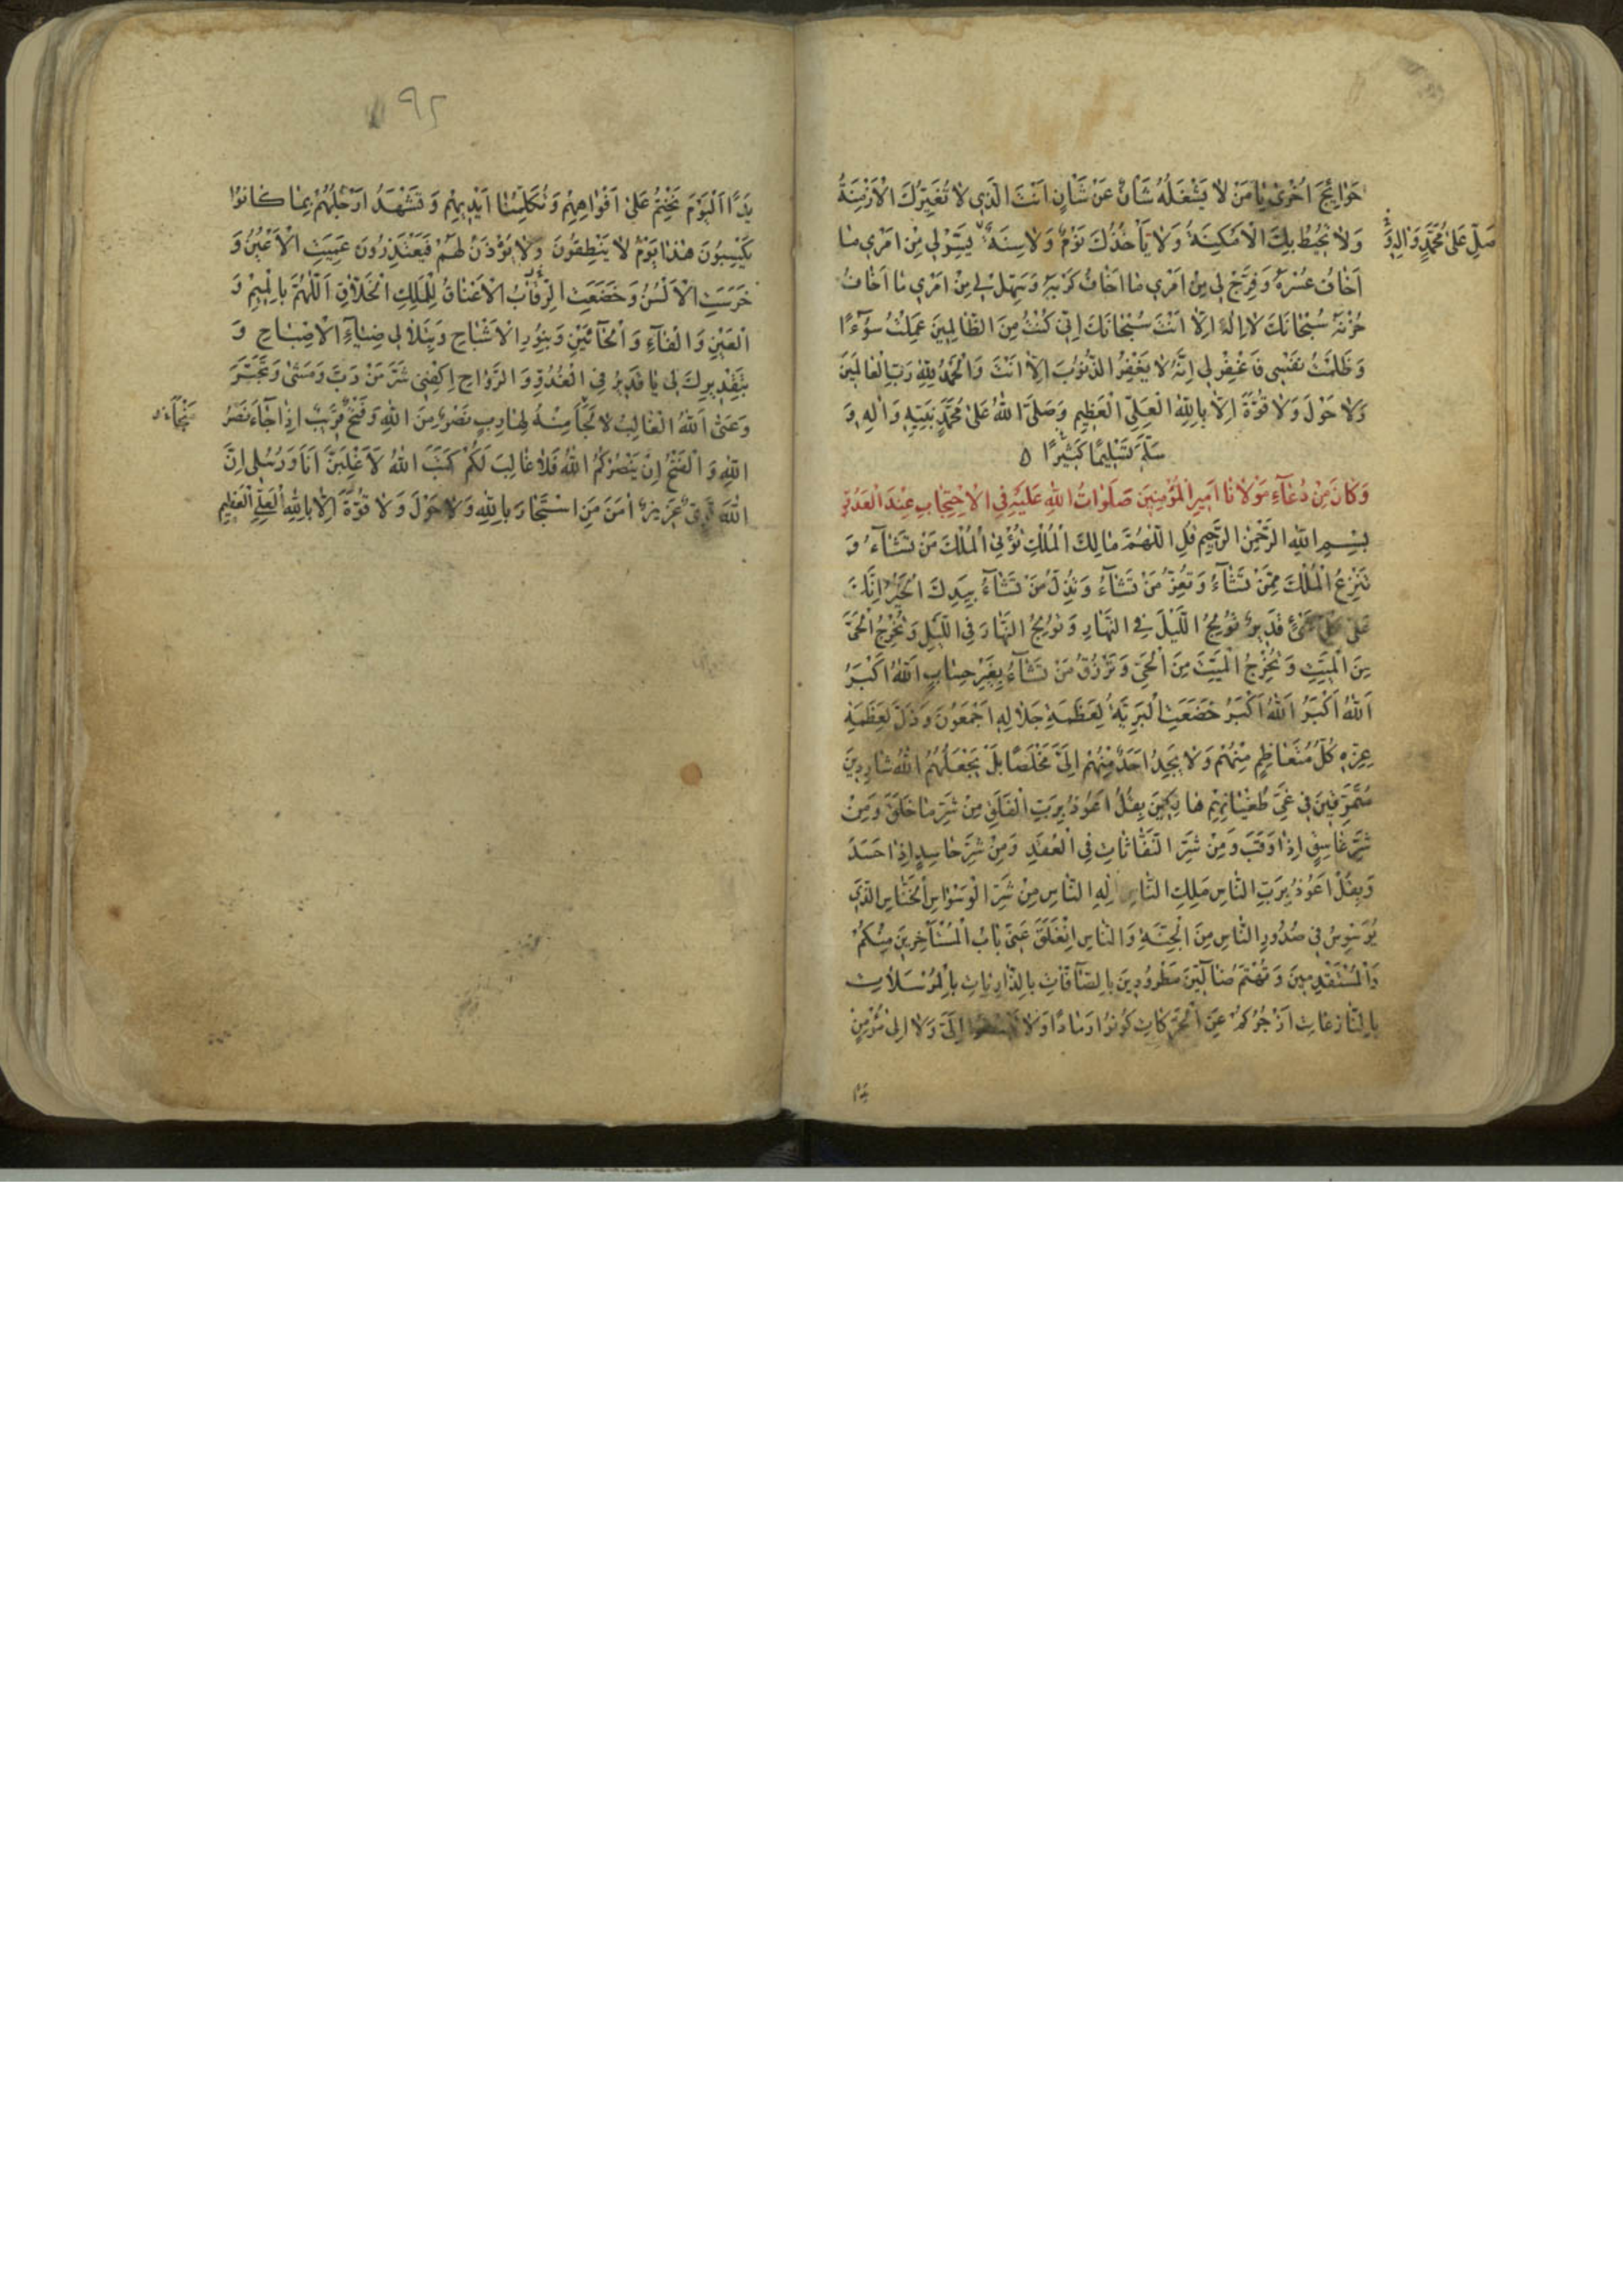 حَوَائِجَ اُخْرٰى يَا مَنْ لَا يَشْغَلُهُ شَأْنٌ عَنْ شَأْنٍ اَنْتَ الَّذِي لَا تُغَيِّرُكَ الْاَزْمِنَةُ
وَلَا تُحِيطُ بِكَ الْاَمْكِنَةُ وَلَا يَأْخُذُكَ نَوْمٌ وَلَا سِنَةٌ يَسِّرْ لِي مِنْ اَمْرِي مَا
صَلِّ عَلٰى مُحَمَّدٍ وَاٰلِهِ وَ
اَخَافُ عُسْرَهُ وَفَرِّجْ لِي مِنْ اَمْرِي مَا اَخَافُ كَرْبَهُ وَسَهِّلْ لِي مِنْ اَمْرِي مَا اَخَافُ
حُزْنَهُ سُبْحَانَكَ لَا اِلٰهَ اِلَّا اَنْتَ سُبْحَانَكَ اِنِّي كُنْتُ مِنَ الظَّالِمِينَ عَمِلْتُ سُوْءًا
وَظَلَمْتُ نَفْسِي فَاغْفِرْ لِي اِنَّهُ لَا يَغْفِرُ الذُّنُوبَ اِلَّا اَنْتَ وَالْحَمْدُ لِلّٰهِ رَبِّ الْعَالَمِينَ
وَلَا حَوْلَ وَلَا قُوَّةَ اِلَّا بِاللّٰهِ الْعَلِيِّ الْعَظِيمِ وَصَلَّى اللّٰهُ عَلٰى مُحَمَّدٍ نَبِيِّهِ وَاٰلِهِ وَ
سَلَّمَ تَسْلِيمًا كَثِيرًا ۵
وَكَانَ مِنْ دُعَآءِ مَوْلَانَا اَمِيرِ الْمُؤْمِنِينَ صَلَوَاتُ اللّٰهِ عَلَيْهِ فِي الْاِحْتِجَابِ عِنْدَ الْعَدُوِّ
بِسْمِ اللّٰهِ الرَّحْمٰنِ الرَّحِيمِ قُلِ اللّٰهُمَّ مَالِكَ الْمُلْكِ تُؤْتِي الْمُلْكَ مَنْ تَشَآءُ وَ
تَنْزِعُ الْمُلْكَ مِمَّنْ تَشَآءُ وَتُعِزُّ مَنْ تَشَآءُ وَتُذِلُّ مَنْ تَشَآءُ بِيَدِكَ الْخَيْرُ اِنَّكَ
عَلٰى كُلِّ شَيْءٍ قَدِيرٌ تُولِجُ اللَّيْلَ فِي النَّهَارِ وَتُولِجُ النَّهَارَ فِي اللَّيْلِ وَتُخْرِجُ الْحَيَّ
مِنَ الْمَيِّتِ وَتُخْرِجُ الْمَيِّتَ مِنَ الْحَيِّ وَتَرْزُقُ مَنْ تَشَآءُ بِغَيْرِ حِسَابٍ اَللّٰهُ اَكْبَرُ
اَللّٰهُ اَكْبَرُ اَللّٰهُ اَكْبَرُ خَضَعَتِ الْبَرِيَّةُ لِعَظَمَةِ جَلَالِهِ اَجْمَعُونَ وَذَلَّ لِعَظَمَةِ
عِزِّهِ كُلُّ مُتَعَاظِمٍ مِنْهُمْ وَلَا يَجِدُ اَحَدٌ مِنْهُمْ اِلَيَّ مَخْلَصًا بَلْ يَجْعَلُهُمُ اللّٰهُ شَارِدِينَ
مُتَمَزِّقِينَ فِي غَيِّ طُغْيَانِهِمْ هَالِكِينَ بِقُلْ اَعُوذُ بِرَبِّ الْفَلَقِ مِنْ شَرِّ مَا خَلَقَ وَمِنْ
شَرِّ غَاسِقٍ اِذَا وَقَبَ وَمِنْ شَرِّ النَّفَّاثَاتِ فِي الْعُقَدِ وَمِنْ شَرِّ حَاسِدٍ اِذَا حَسَدَ
وَبِقُلْ اَعُوذُ بِرَبِّ النَّاسِ مَلِكِ النَّاسِ اِلٰهِ النَّاسِ مِنْ شَرِّ الْوَسْوَاسِ الْخَنَّاسِ الَّذِي
يُوَسْوِسُ فِي صُدُورِ النَّاسِ مِنَ الْجِنَّةِ وَالنَّاسِ اِنْغَلَقَ عَنِّي بَابُ الْمُسْتَأْخِرِينَ مِنْكُمْ
وَالْمُسْتَقْدِمِينَ وَتُهْتُمْ ضَآلِّينَ مَطْرُودِينَ بِالصَّآفَّاتِ بِالذَّارِيَاتِ بِالْمُرْسَلَاتِ
بِالنَّازِعَاتِ اَزْجُرُكُمْ عَنِ الْحَرَكَاتِ كُونُوا رَمَادًا وَلَا تَبْسُطُوا اِلَيَّ وَلَا اِلٰى مُؤْمِنٍ
۹۲
يَدًا اَلْيَوْمَ نَخْتِمُ عَلٰى اَفْوَاهِهِمْ وَتُكَلِّمُنَا اَيْدِيهِمْ وَتَشْهَدُ اَرْجُلُهُمْ بِمَا كَانُوا
يَكْسِبُونَ هٰذَا يَوْمُ لَا يَنْطِقُونَ وَلَا يُؤْذَنُ لَهُمْ فَيَعْتَذِرُونَ عَمِيَتِ الْاَعْيُنُ وَ
خَرِسَتِ الْاَلْسُنُ وَخَضَعَتِ الرِّقَابُ الْاَعْنَاقُ لِلْمَلِكِ الْخَلَّاقِ اَللّٰهُمَّ بِالْمِيمِ وَ
الْعَيْنِ وَالْفَآءِ وَالْحَآئَيْنِ وَبِنُورِ الْاَشْبَاحِ وَبِتَلَأْلُؤِ ضِيَآءِ الْاِصْبَاحِ وَ
بِتَقْدِيرِكَ لِي يَا قَدِيرُ فِي الْغُدُوِّ وَالرَّوَاحِ اِكْفِنِي شَرَّ مَنْ دَبَّ وَمَشٰى وَتَجَبَّرَ
وَعَتٰى اَللّٰهُ الْغَالِبُ لَا مَلْجَأَ مِنْهُ لِهَارِبٍ نَصْرٌ مِنَ اللّٰهِ وَفَتْحٌ قَرِيبٌ اِذَا جَآءَ نَصْرُ
اللّٰهِ وَالْفَتْحُ اِنْ يَنْصُرْكُمُ اللّٰهُ فَلَا غَالِبَ لَكُمْ كَتَبَ اللّٰهُ لَاَغْلِبَنَّ اَنَا وَرُسُلِي اِنَّ
اللّٰهَ قَوِيٌّ عَزِيزٌ اَمِنَ مَنِ اسْتَجَارَ بِاللّٰهِ وَلَا حَوْلَ وَلَا قُوَّةَ اِلَّا بِاللّٰهِ الْعَلِيِّ الْعَظِيمِ